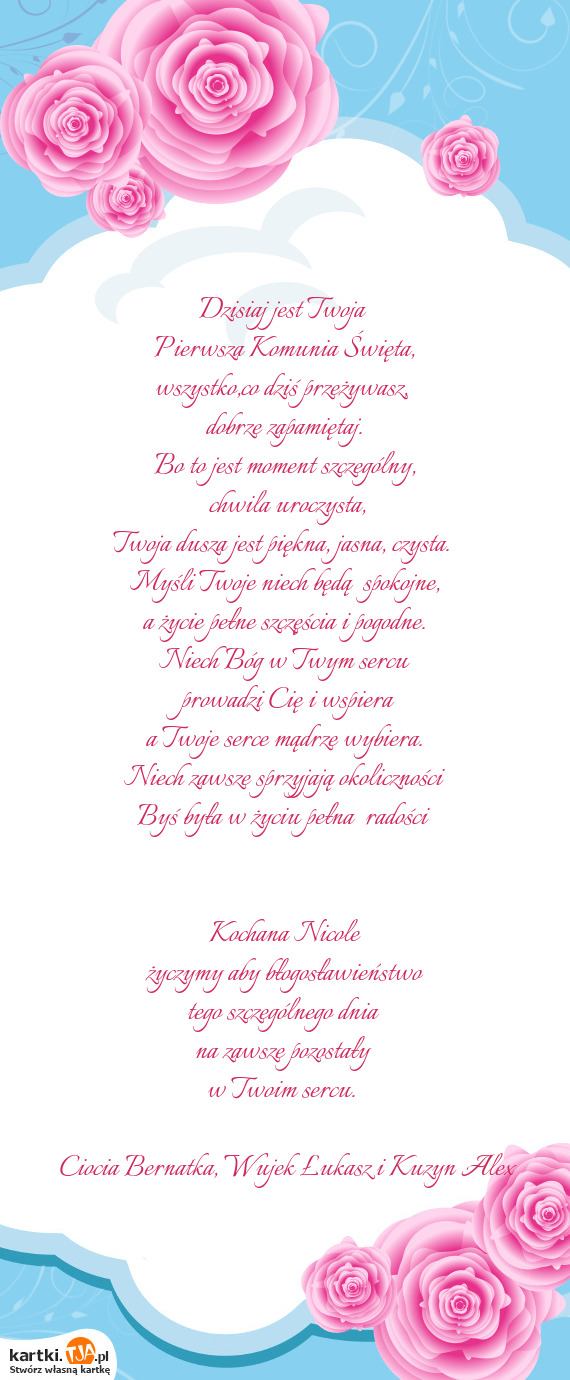 Dzisiaj jest Twoja
Pierwsza Komunia Święta,
wszystko,co dziś przeżywasz,
dobrze zapamiętaj.
Bo to jest moment szczególny,
chwila uroczysta,
Twoja dusza jest piękna, jasna, czysta.
Myśli Twoje niech będą spokojne,
a życie pełne szczęścia i pogodne.
Niech Bóg w Twym sercu
prowadzi Cię i wspiera
a Twoje serce mądrze wybiera.
Niech zawsze sprzyjają okoliczności
Byś była w życiu pełna radości
Kochana Nicole
życzymy aby błogosławieństwo
tego szczególnego dnia
na zawsze pozostały
w Twoim sercu.
Ciocia Bernatka, Wujek Łukasz i Kuzyn Alex
kartki.TJA.pl
Stwórz własną kartkę